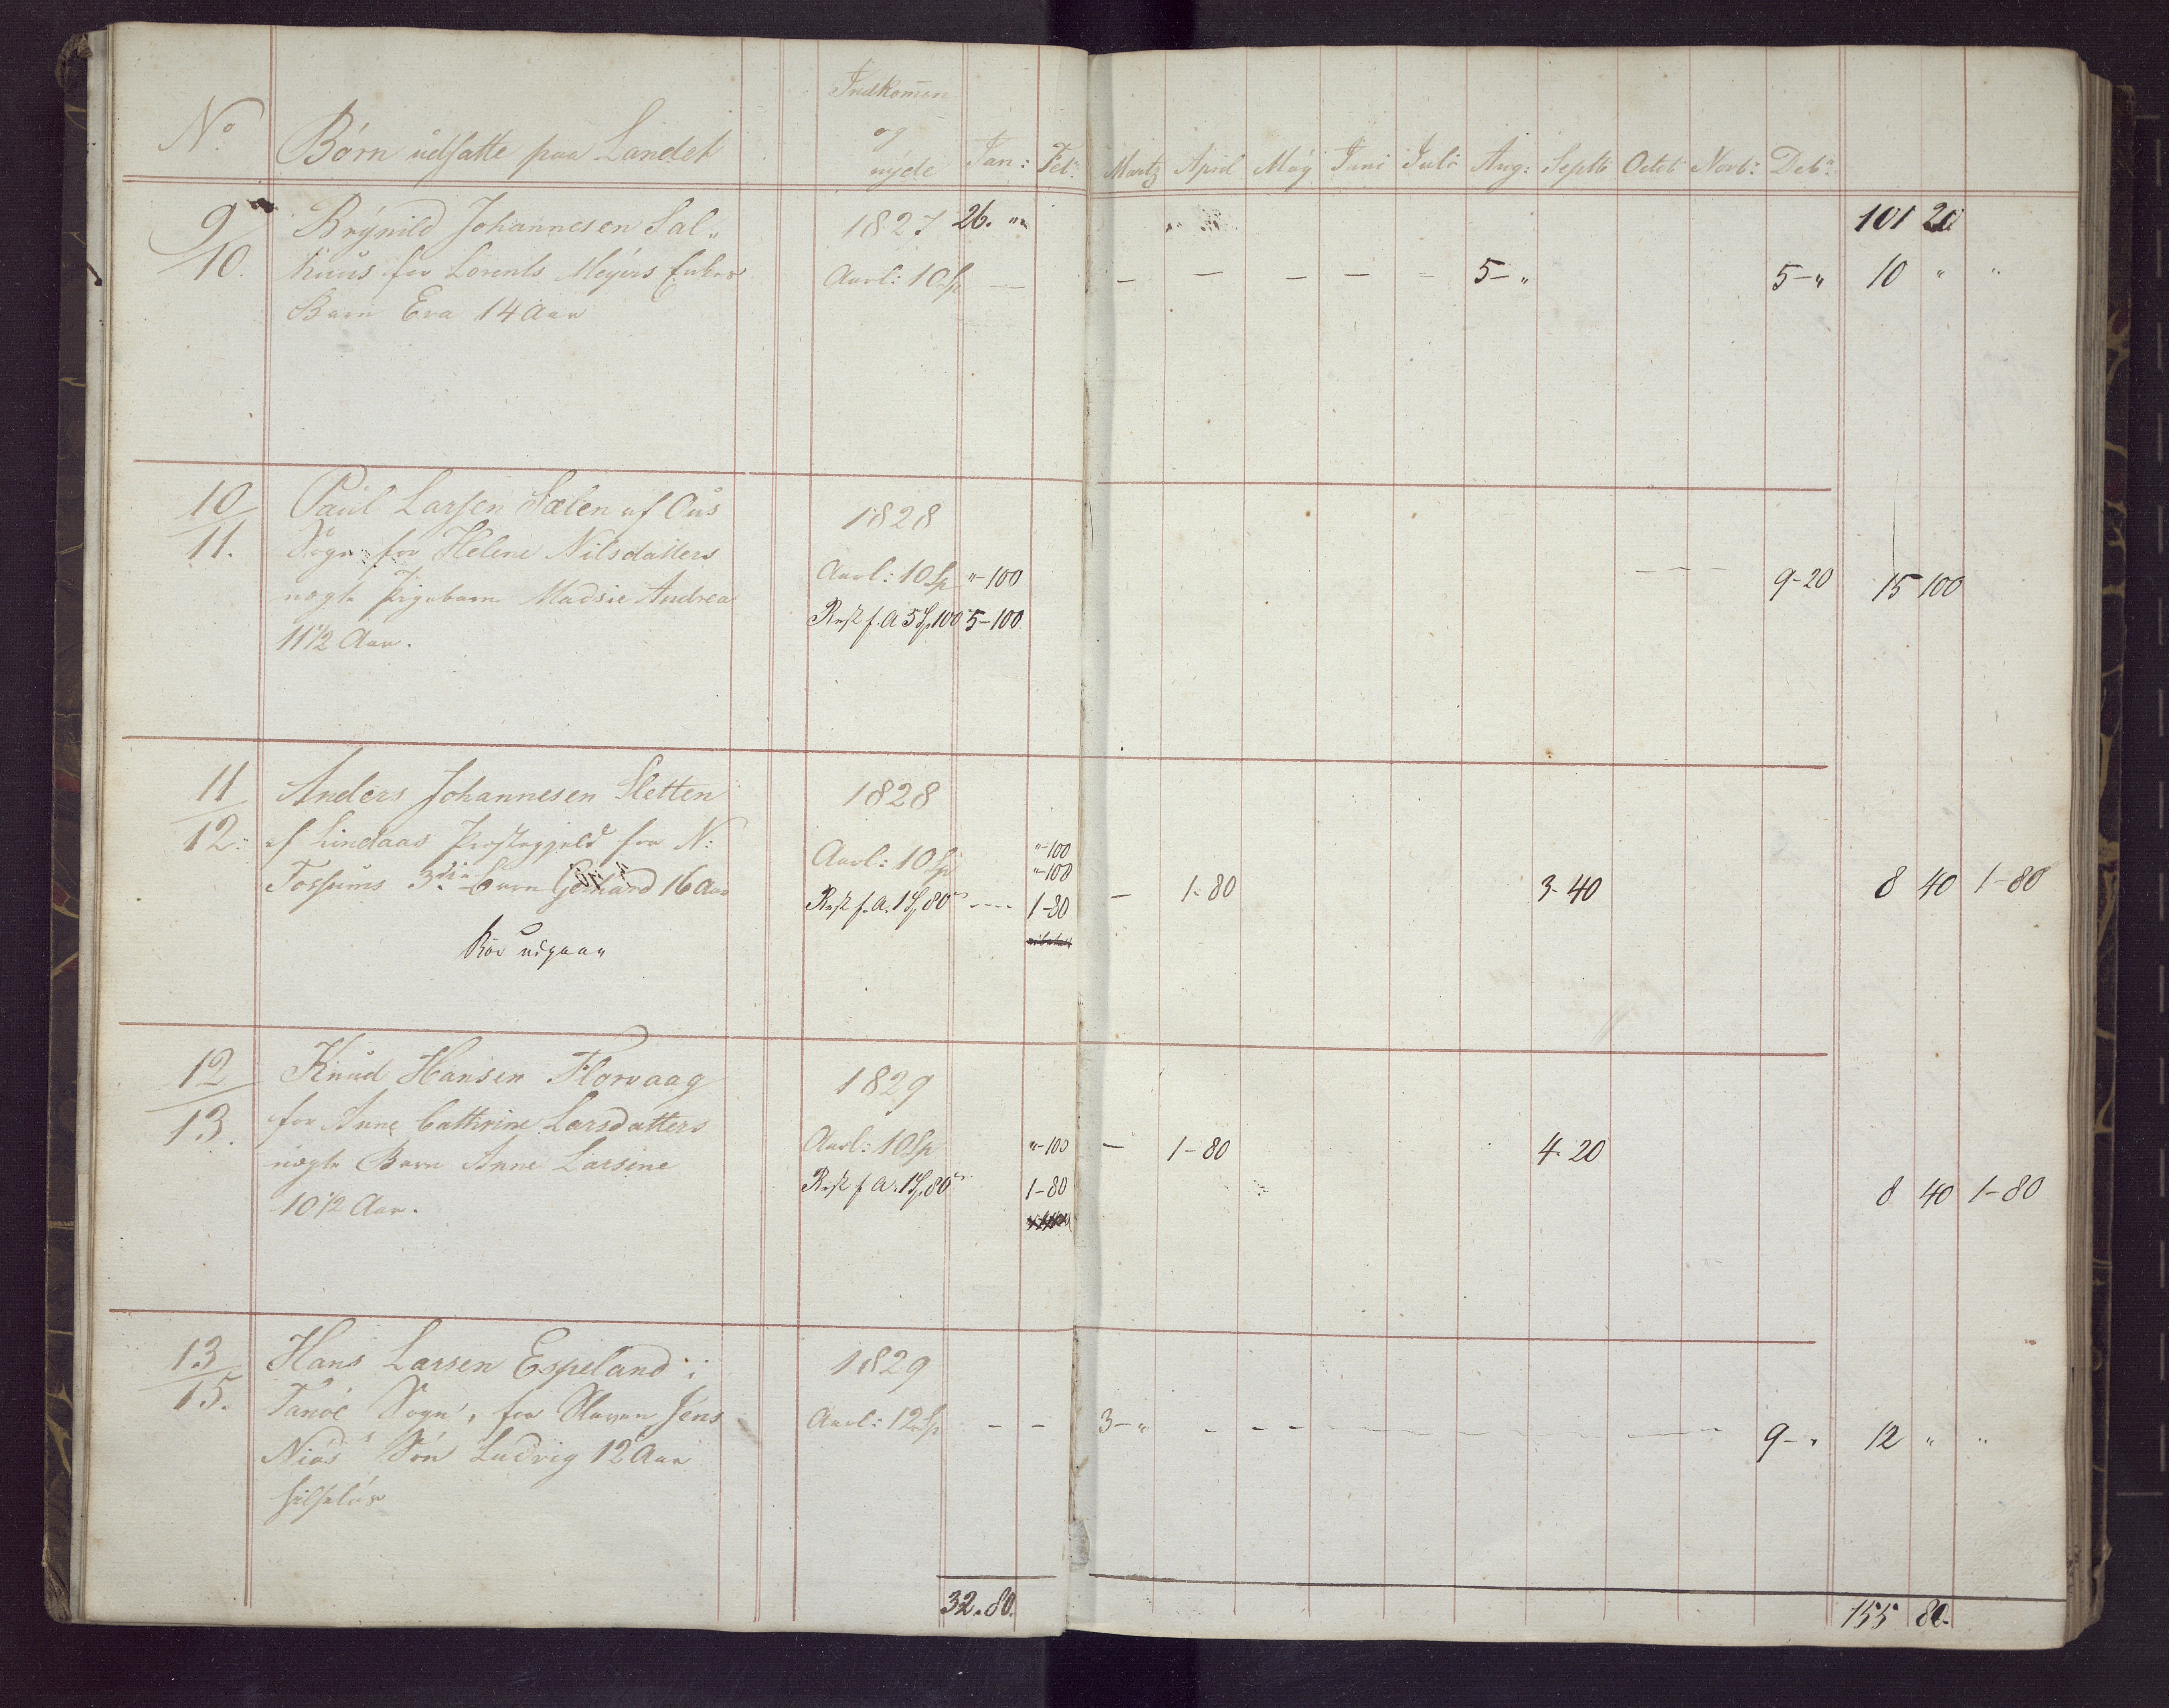 Indkom̄en
No Børn udsatte paa Landet og nyde Jan: Feb: Martz April May Juni Juli Aug: Septb: Octob: Novb: Decb:
9 Brynild Johannesen Sal„ 1827 26. „ 101 20
10. huus for Lorents Meyers Enkes Aarl: 10 Sp — — — — — — 5-„ 5-„ 10 „ „
Barn Eva 14 Aar
10 Paul Larsen Sælen af Ous 1828
11. Sogn for Helene Nilsdatters Aarl: 10 Sp „-100 — — — 9-20 15 100
uægte Pigebarn Madsie Andrea Rest f. A 5 Sp 100 5-100
11½ Aar.
11 Anders Johannesen Sletten 1828
12. af Lindaas Præstegjeld for N: Aarl: 10 Sp „-100
„-100
Tossums 3die Barn Gerhard 16 Aar Rest f. A. 1 Sp 80 ---- 1-80 — 1-80 3-40 8 40 1-80
Bør udgaae
12 Knud Hansen Florvaag 1829
13. for Anne Cathrine Larsdatters Aarl: 10 Sp „-100 — 1-80 4-20
uægte Barn Anne Larsine Rest f. A. 1 Sp 80 1-80 8 40 1-80
10½ Aar.
13 Hans Larsen Espeland i 1829
15. Fanöe Sogn, for Slaven Jens Aarl: 12 Sp — — 3-„ — — — — 9-„ 12 „ „
Niøs Søn Ludvig 12 Aar
hilseløs
32. 80. 155 80.